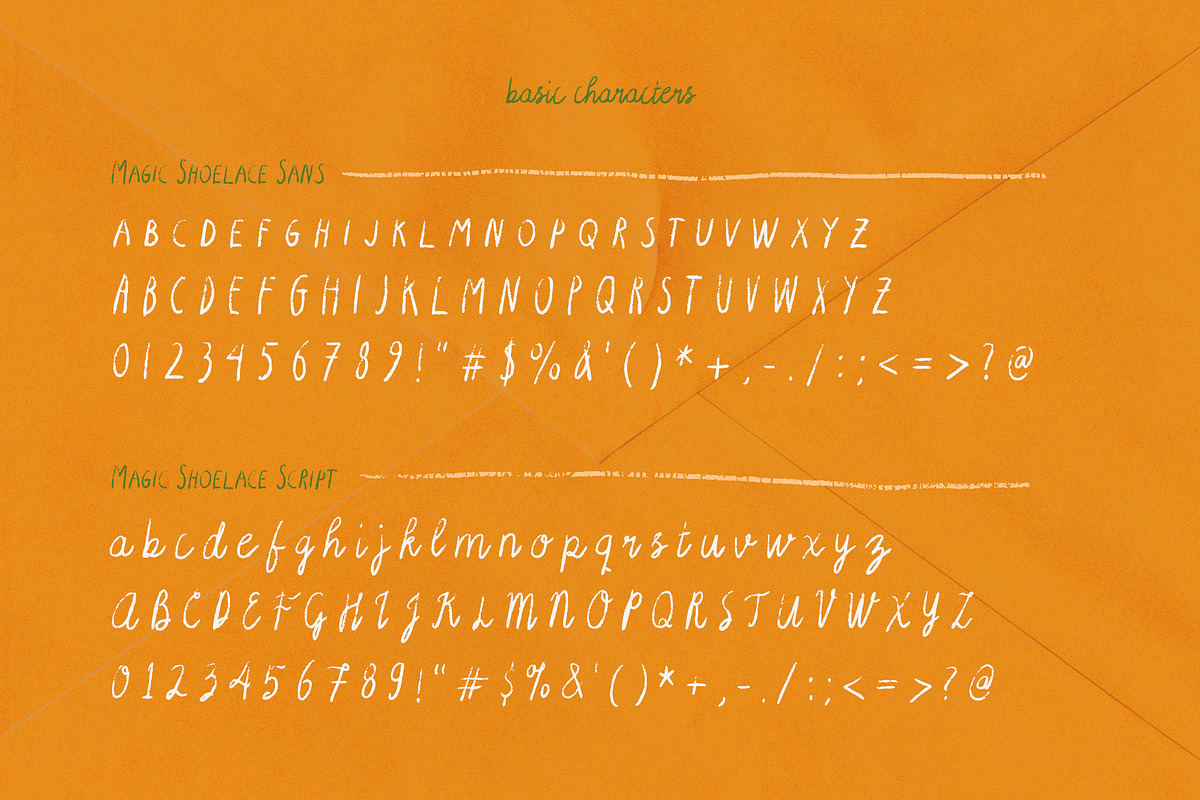 basic characters
MAGIC SHOELACE SANS
A B C D E F G H I J K L M N O P Q R S T U V W X Y Z
A B C D E F G H I J K L M N O P Q R S T U V W X Y Z
0 1 2 3 4 5 6 7 8 9 ! " # $ % & ' ( ) * + , - . / : ; < = > ? @
MAGIC SHOELACE SCRIPT
a b c d e f g h i j k l m n o p q r s t u v w x y z
A B C D E F G H I J K L M N O P Q R S T U V W X Y Z
0 1 2 3 4 5 6 7 8 9 ! " # $ % & ' ( ) * + , - . / : ; < = > ? @